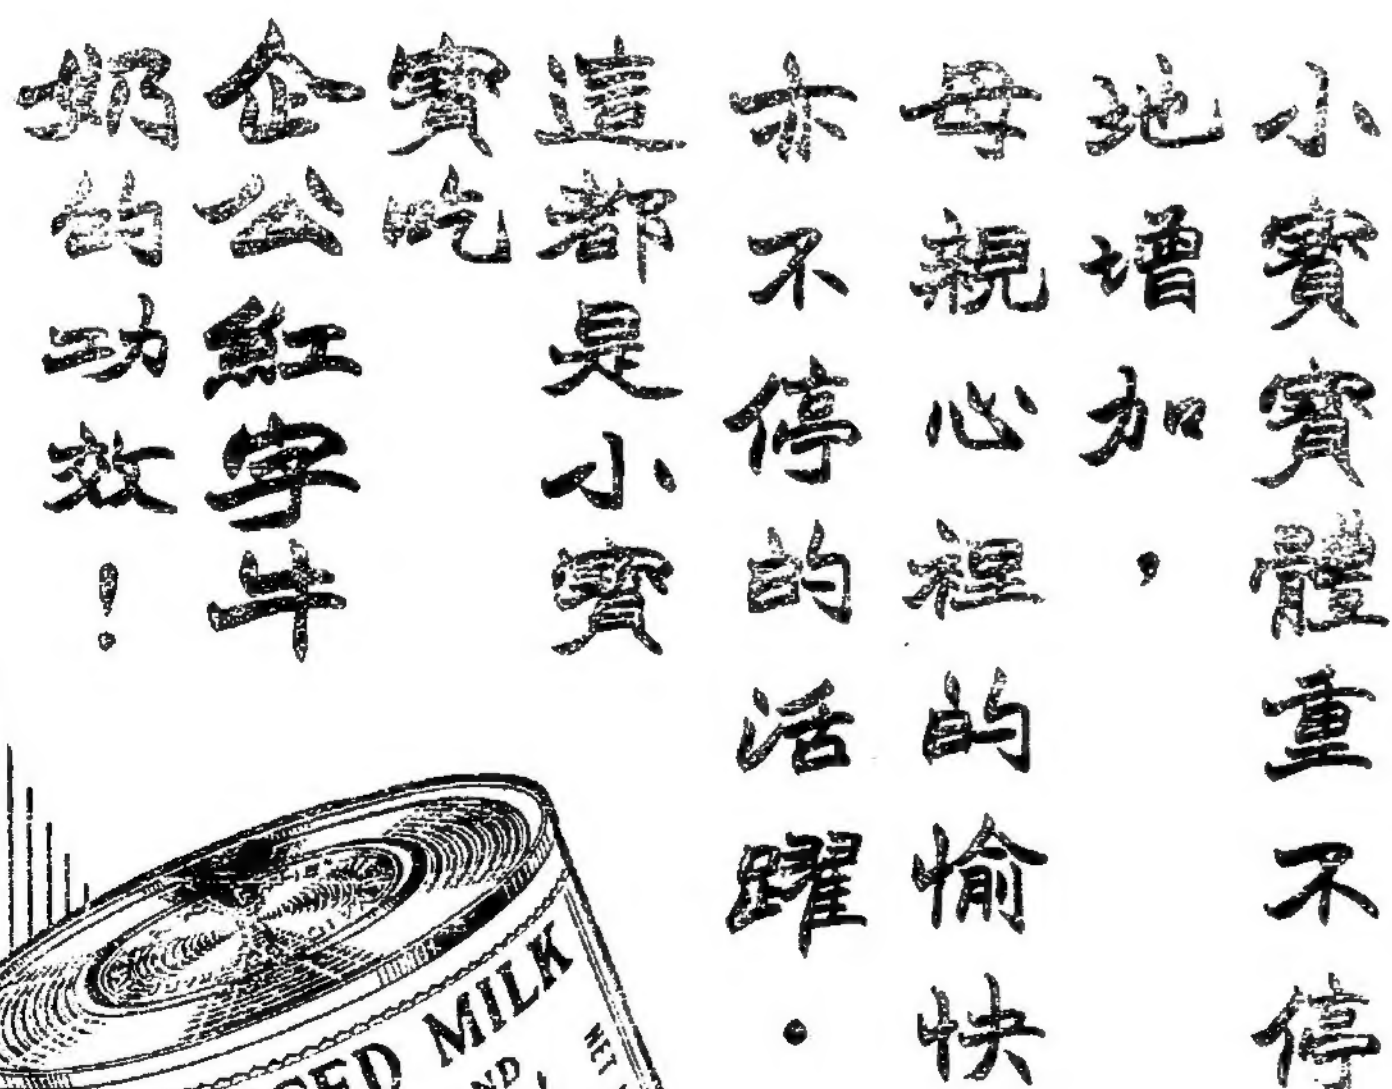 小寶寶體重不停
地增加，
母親心裡的愉快
亦不停的活躍．
這都是小寶
寶吃
企公紅字牛
奶的功效！
MILK
NET